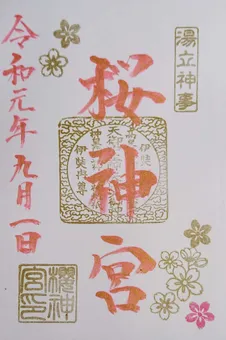 湯立神事
桜神宮
令和元年九月一日
伊弉冉尊
櫻神
宮印